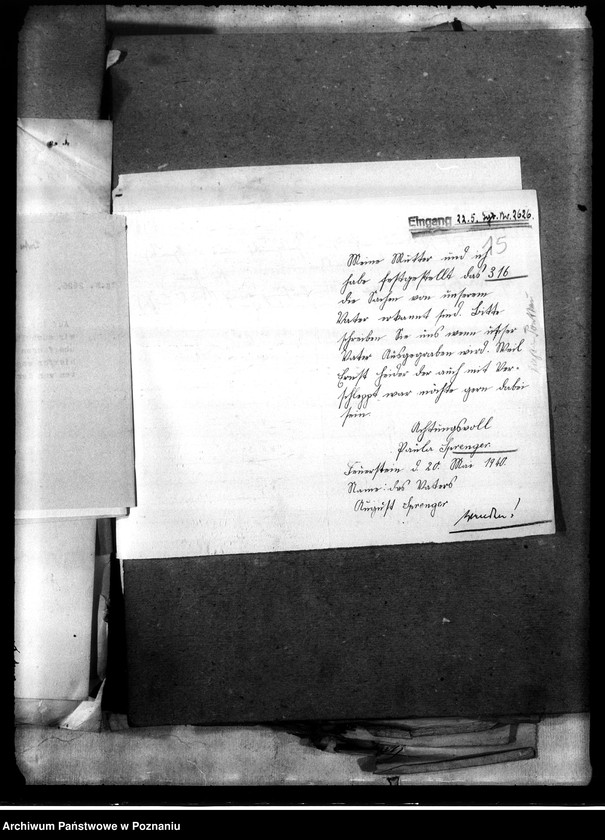 Eingang 22.5. Nr. 2626.
15
Meine Mutter und ich
habe festgestellt das 316
die Sachen von unserem
Vater erkannt sind. Bitte
schreiben Sie uns wenn unser
Vater Ausgegraben wird. Weil
Ernst Heider der auch mit Ver-
schleppt war möchte gern dabei
sein.
Achtungsvoll
Paula Sprenger
Feuerstein d. 20. Mai 1940.
Name: des Vaters
August Sprenger
wenden!
Archiwum Państwowe w Poznaniu